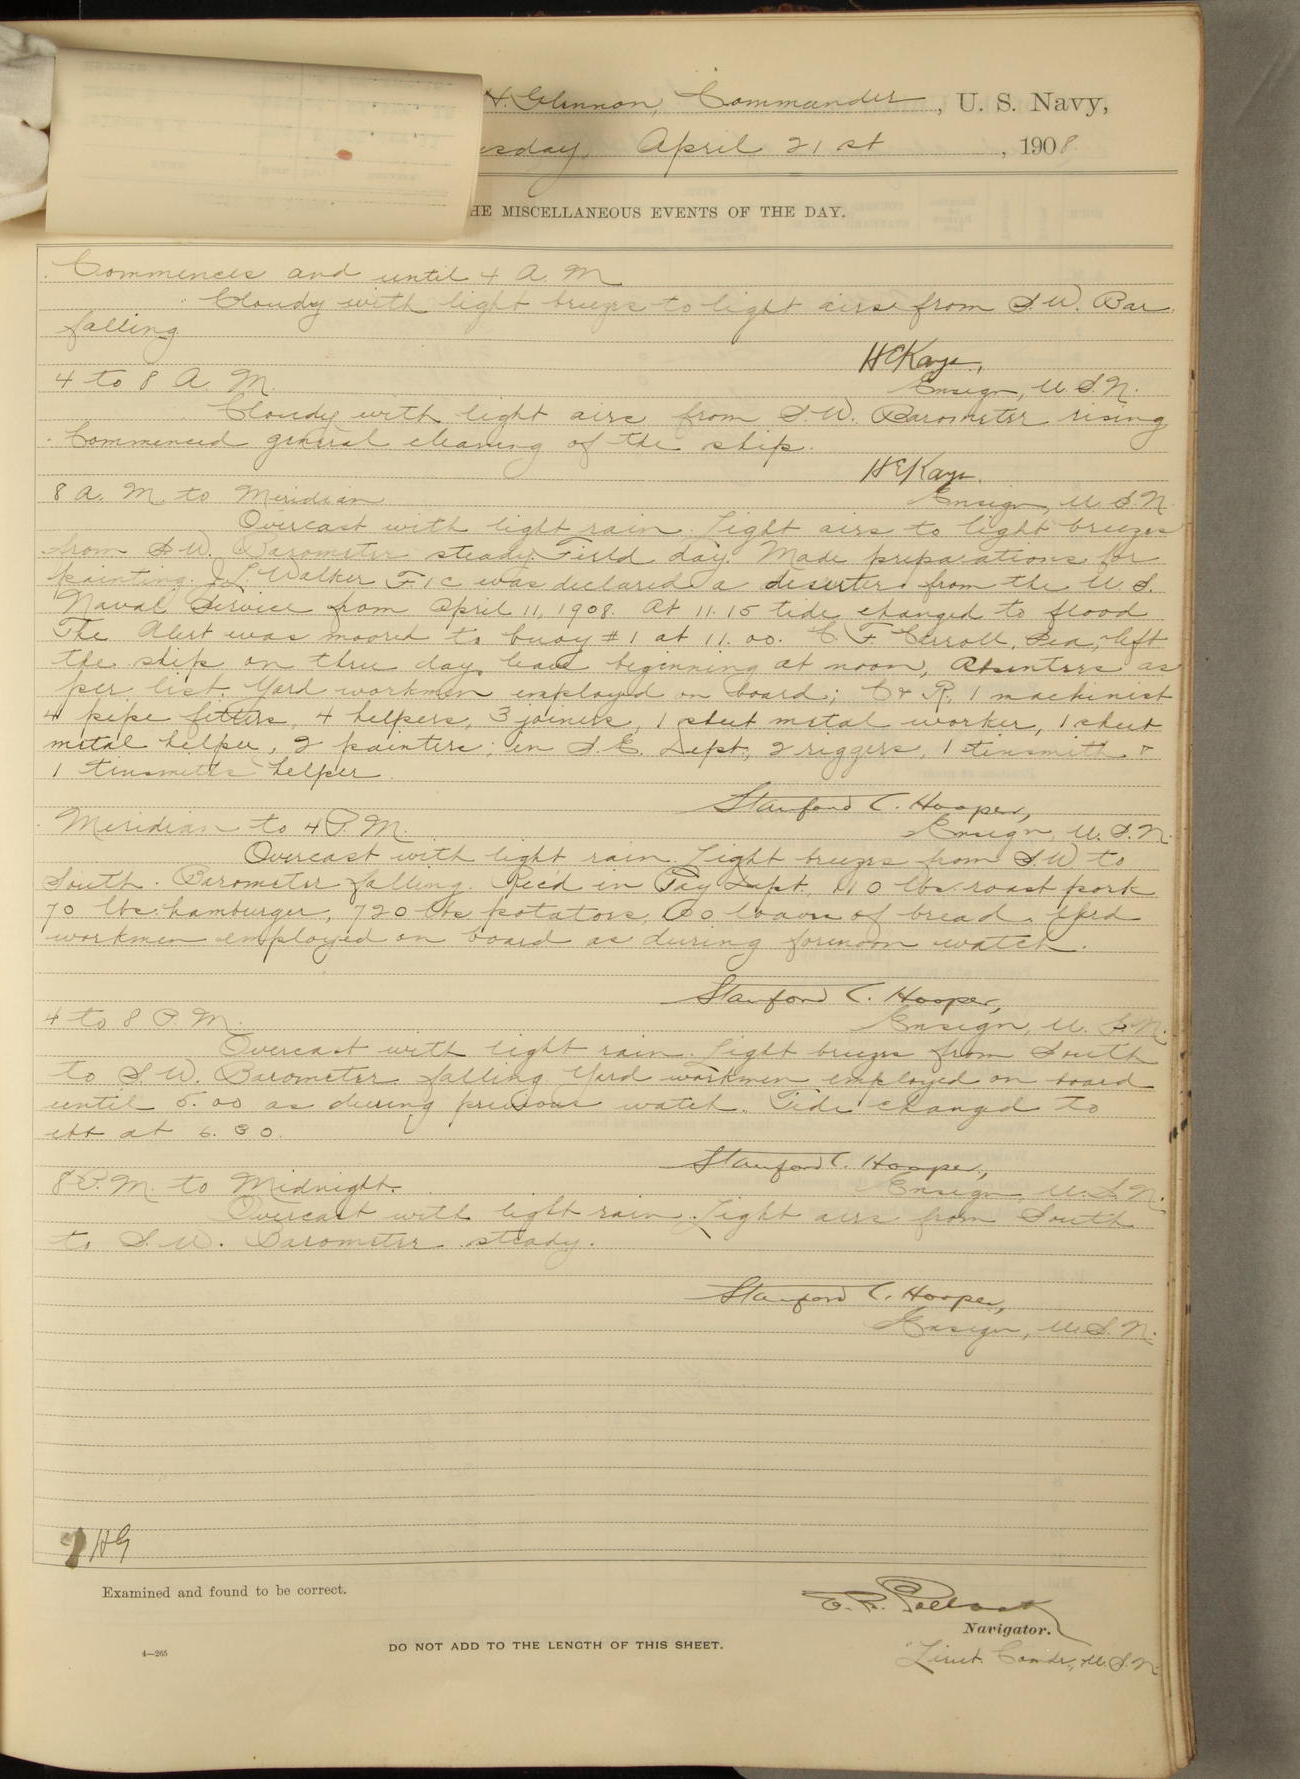 H. Glennon, Commander, U. S. Navy,
sday, April 21st, 1908
HE MISCELLANEOUS EVENTS OF THE DAY.
Commences and until 4 A. M
Cloudy with light breezes to light airs from S.W. Bar
falling
H E Kays,
4 to 8 A. M. Ensign, U.S.N.
Cloudy with light airs from S.W. Barometer rising
Commenced general cleaning of the ship.
H E Kays.
8 A. M. to Meridian Ensign, U.S.N.
Overcast with light rain. Light airs to light breezes
from S.W. Barometer steady. Field day. Made preparations for
painting. J.L. Walker F. 1 C was declared a deserter from the U.S.
Naval Service from April 11, 1908. At 11.15 tide changed to flood
The Alert was moored to buoy #1 at 11.00. C. F. Carroll, Sea, left
the ship on three days leave beginning at noon, Absentees as
per list. Yard workmen employed on board; C & R, 1 machinist
4 pipe fitters, 4 helpers, 3 joiners, 1 sheet metal worker, 1 sheet
metal helper, 2 painters; in S.E. Dept., 2 riggers, 1 tinsmith &
1 tinsmiths helper
Stanford C. Hooper,
Meridian to 4 P.M. Ensign, U.S.N.
Overcast with light rain. Light breezes from S.W to
South. Barometer falling. Rec'd in Pay Dept., 110 lbs. roast pork
70 lbs. hamburger, 720 lbs potatoes, 60 loaves of bread. Yard
workmen employed on board as during forenoon watch.
Stanford C. Hooper,
4 to 8 P.M. Ensign, U.S.N.
Overcast with light rain. Light breezes from South
to S.W. Barometer falling. Yard workmen employed on board
until 5.00 as during previous watch. Tide changed to
ebb at 6.30.
Stanford C. Hooper,
8 P.M. to Midnight. Ensign, U.S.N.
Overcast with light rain. Light airs from South
to S.W. Barometer steady.
Stanford C. Hooper,
Ensign, U.S.N.
HG
Examined and found to be correct.
Navigator.
4—265
DO NOT ADD TO THE LENGTH OF THIS SHEET.
Lieut. Comdr., U.S.N.